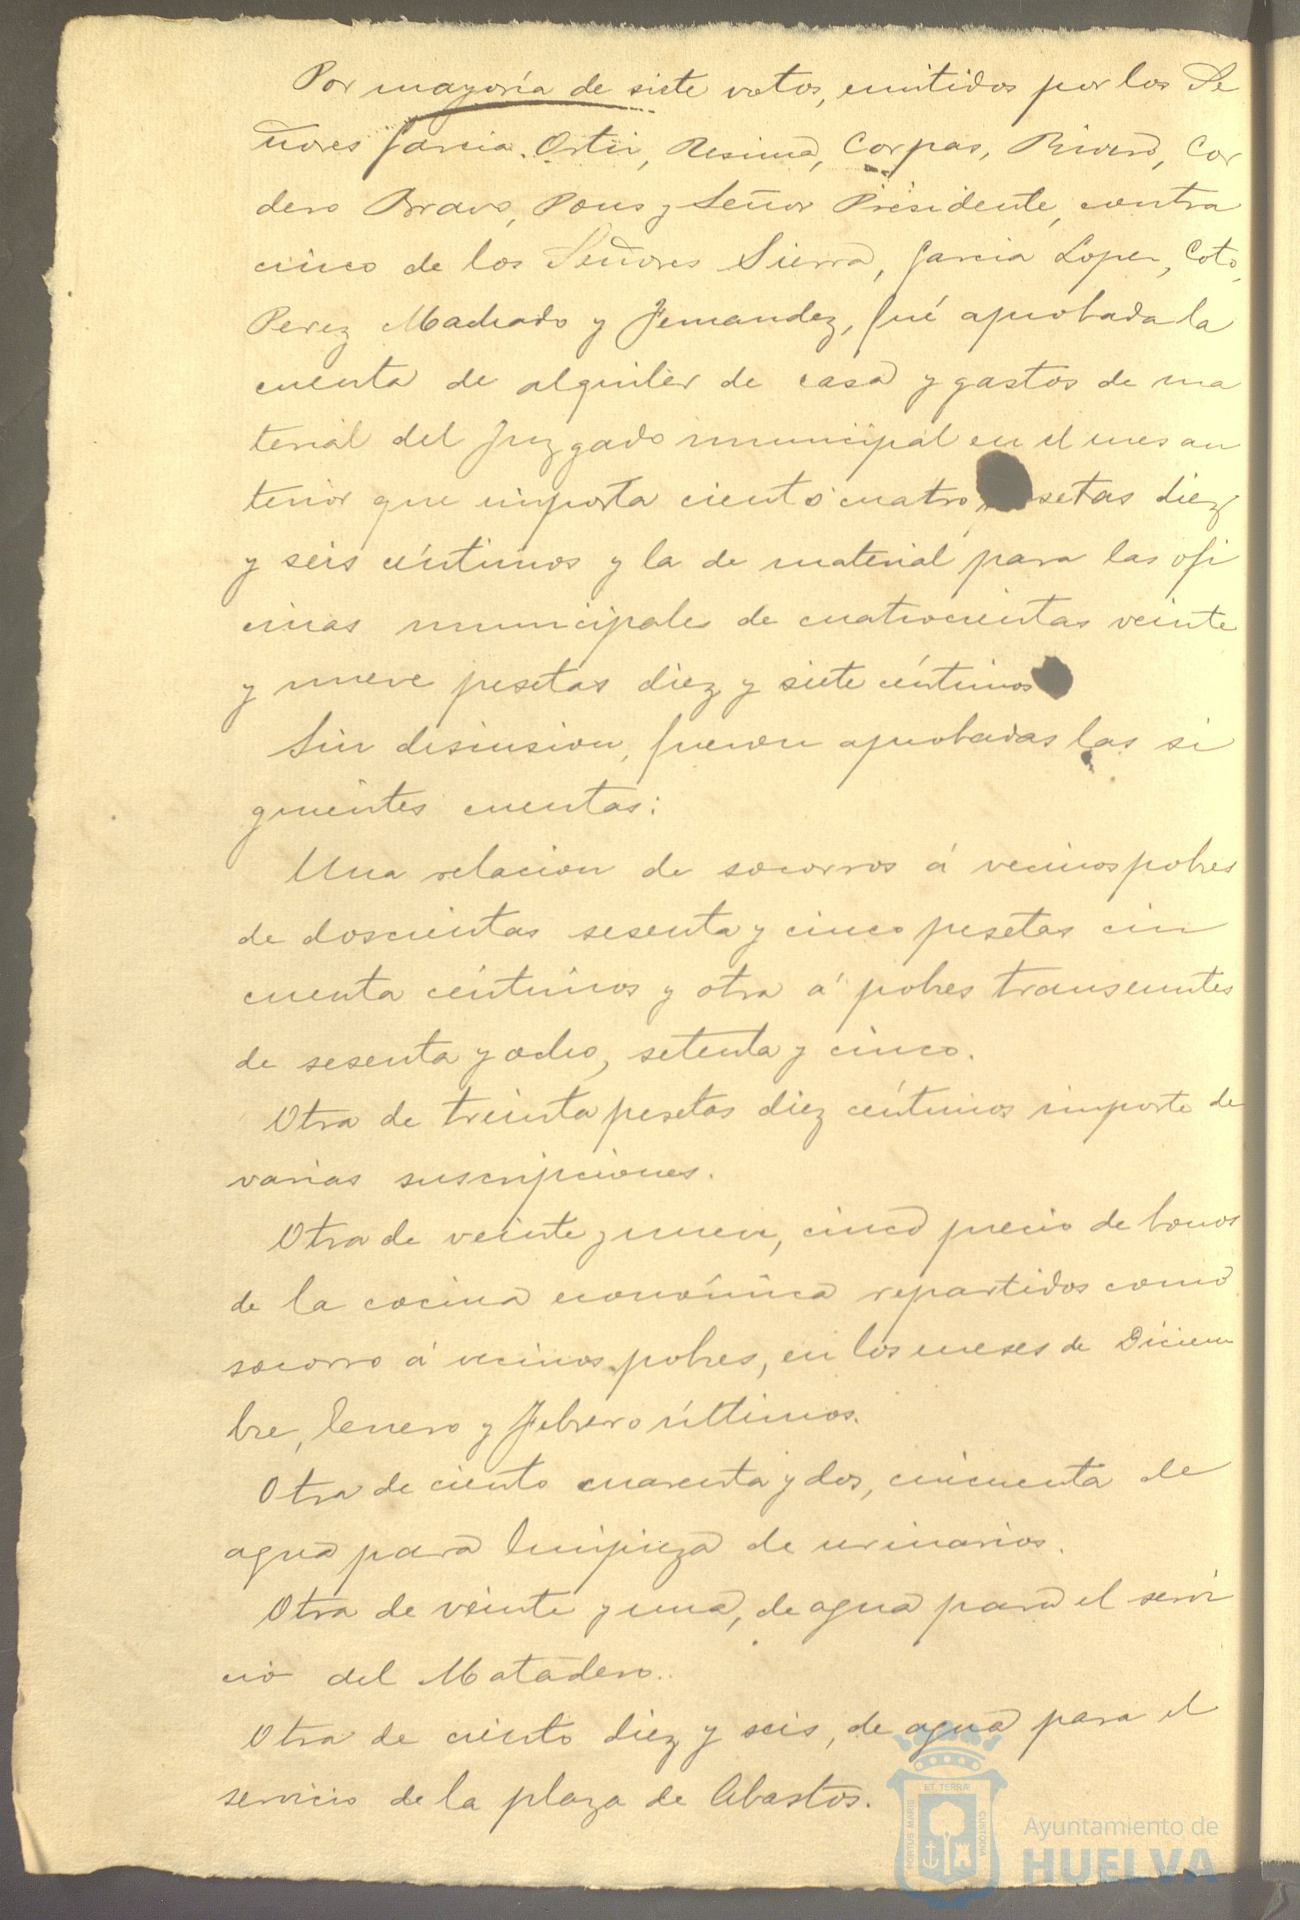 Por mayoría de siete votos, emitidos por los Se
ñores Garcia Ortiz, Resima, Corpas, Rivero, Cor
dero Bravo, Pons y Señor Presidente, contra
cinco de los Señores Sierra, Garcia Lopez, Coto,
Perez Machado y Fernandez, fué aprobada la
cuenta de alquiler de casa y gastos de ma
terial del Juzgado municipal en el mes an
terior que importa ciento cuatro setas diez
y seis céntimos y la de material para las ofi
cinas municipales de cuatrocientas veinte
y nueve pesetas diez y siete céntimos
Sin discusion, fueron aprobadas las si
guientes cuentas:
Una relacion de socorros á vecinos pobres
de doscientas sesenta y cinco pesetas cin
cuenta céntimos y otra á pobres transeuntes
de sesenta y ocho, setenta y cinco.
Otra de treinta pesetas diez céntimos importe de
varias suscripciones.
Otra de veinte y nueve, cinco precio de bonos
de la cocina económica repartidos como
socorro á vecinos pobres, en los meses de Diciem
bre, Enero y Febrero últimos.
Otra de ciento cuarenta y dos, cincuenta de
agua para limpieza de urinarios.
Otra de veinte y una, de agua para el servi
cio del Matadero.
Otra de ciento diez y seis, de agua para el
servicio de la plaza de Abastos.
ET TERRÆ
PORTUS MARIS
CUSTODIA
Ayuntamiento de
HUELVA